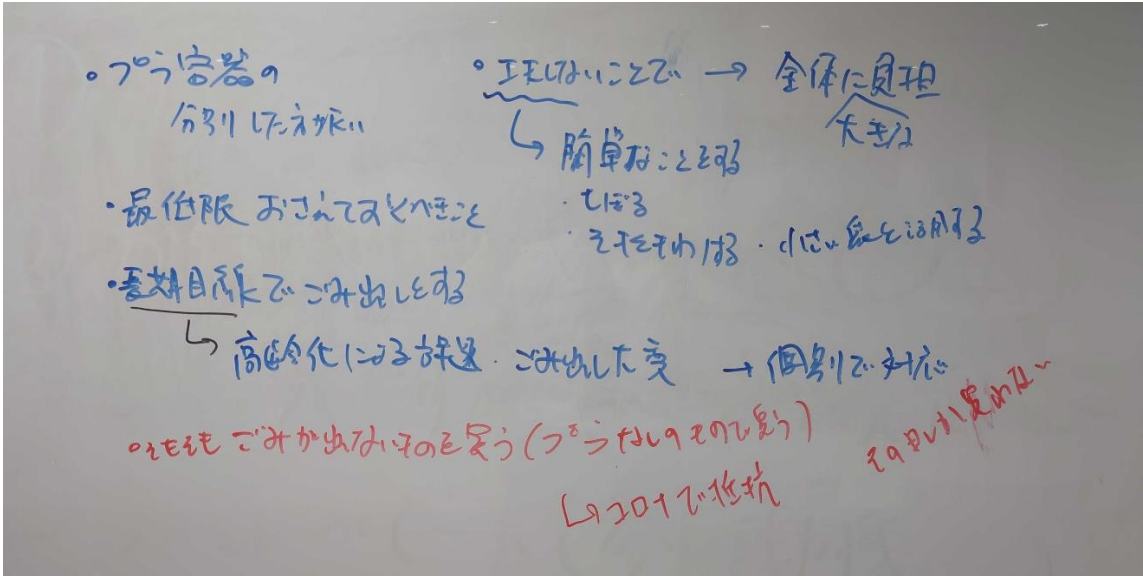 ・プラ容器の
分別した方が良い
・最低限 おさえておくべきこと
・長期目線でごみ出しをする
↳ 高齢化による課題・ごみ出し大変 → 個別で対応
・ないことで → 全体に負担
大きな
↳ 簡単なことをする
・しぼる
・小さい袋を活用する
・そもそも ごみが出ないものを買う(プラなしのもので買う)
↳ コロナで抵抗
その日しか出せない